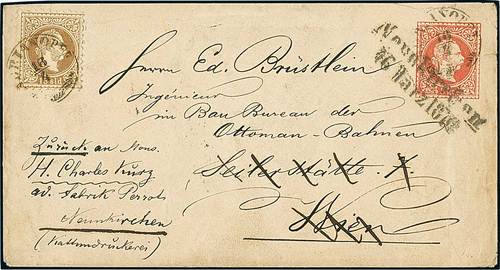 Herrn Ed. Brüstlein
Ingénieur
im Bau Bureau der
Ottoman-Bahnen
Seilerstätte
Wien
Zurück an Mons.
H. Charles Kurz
ad. Fabrik Perrots
Neunkirchen
(Kattundruckerei)